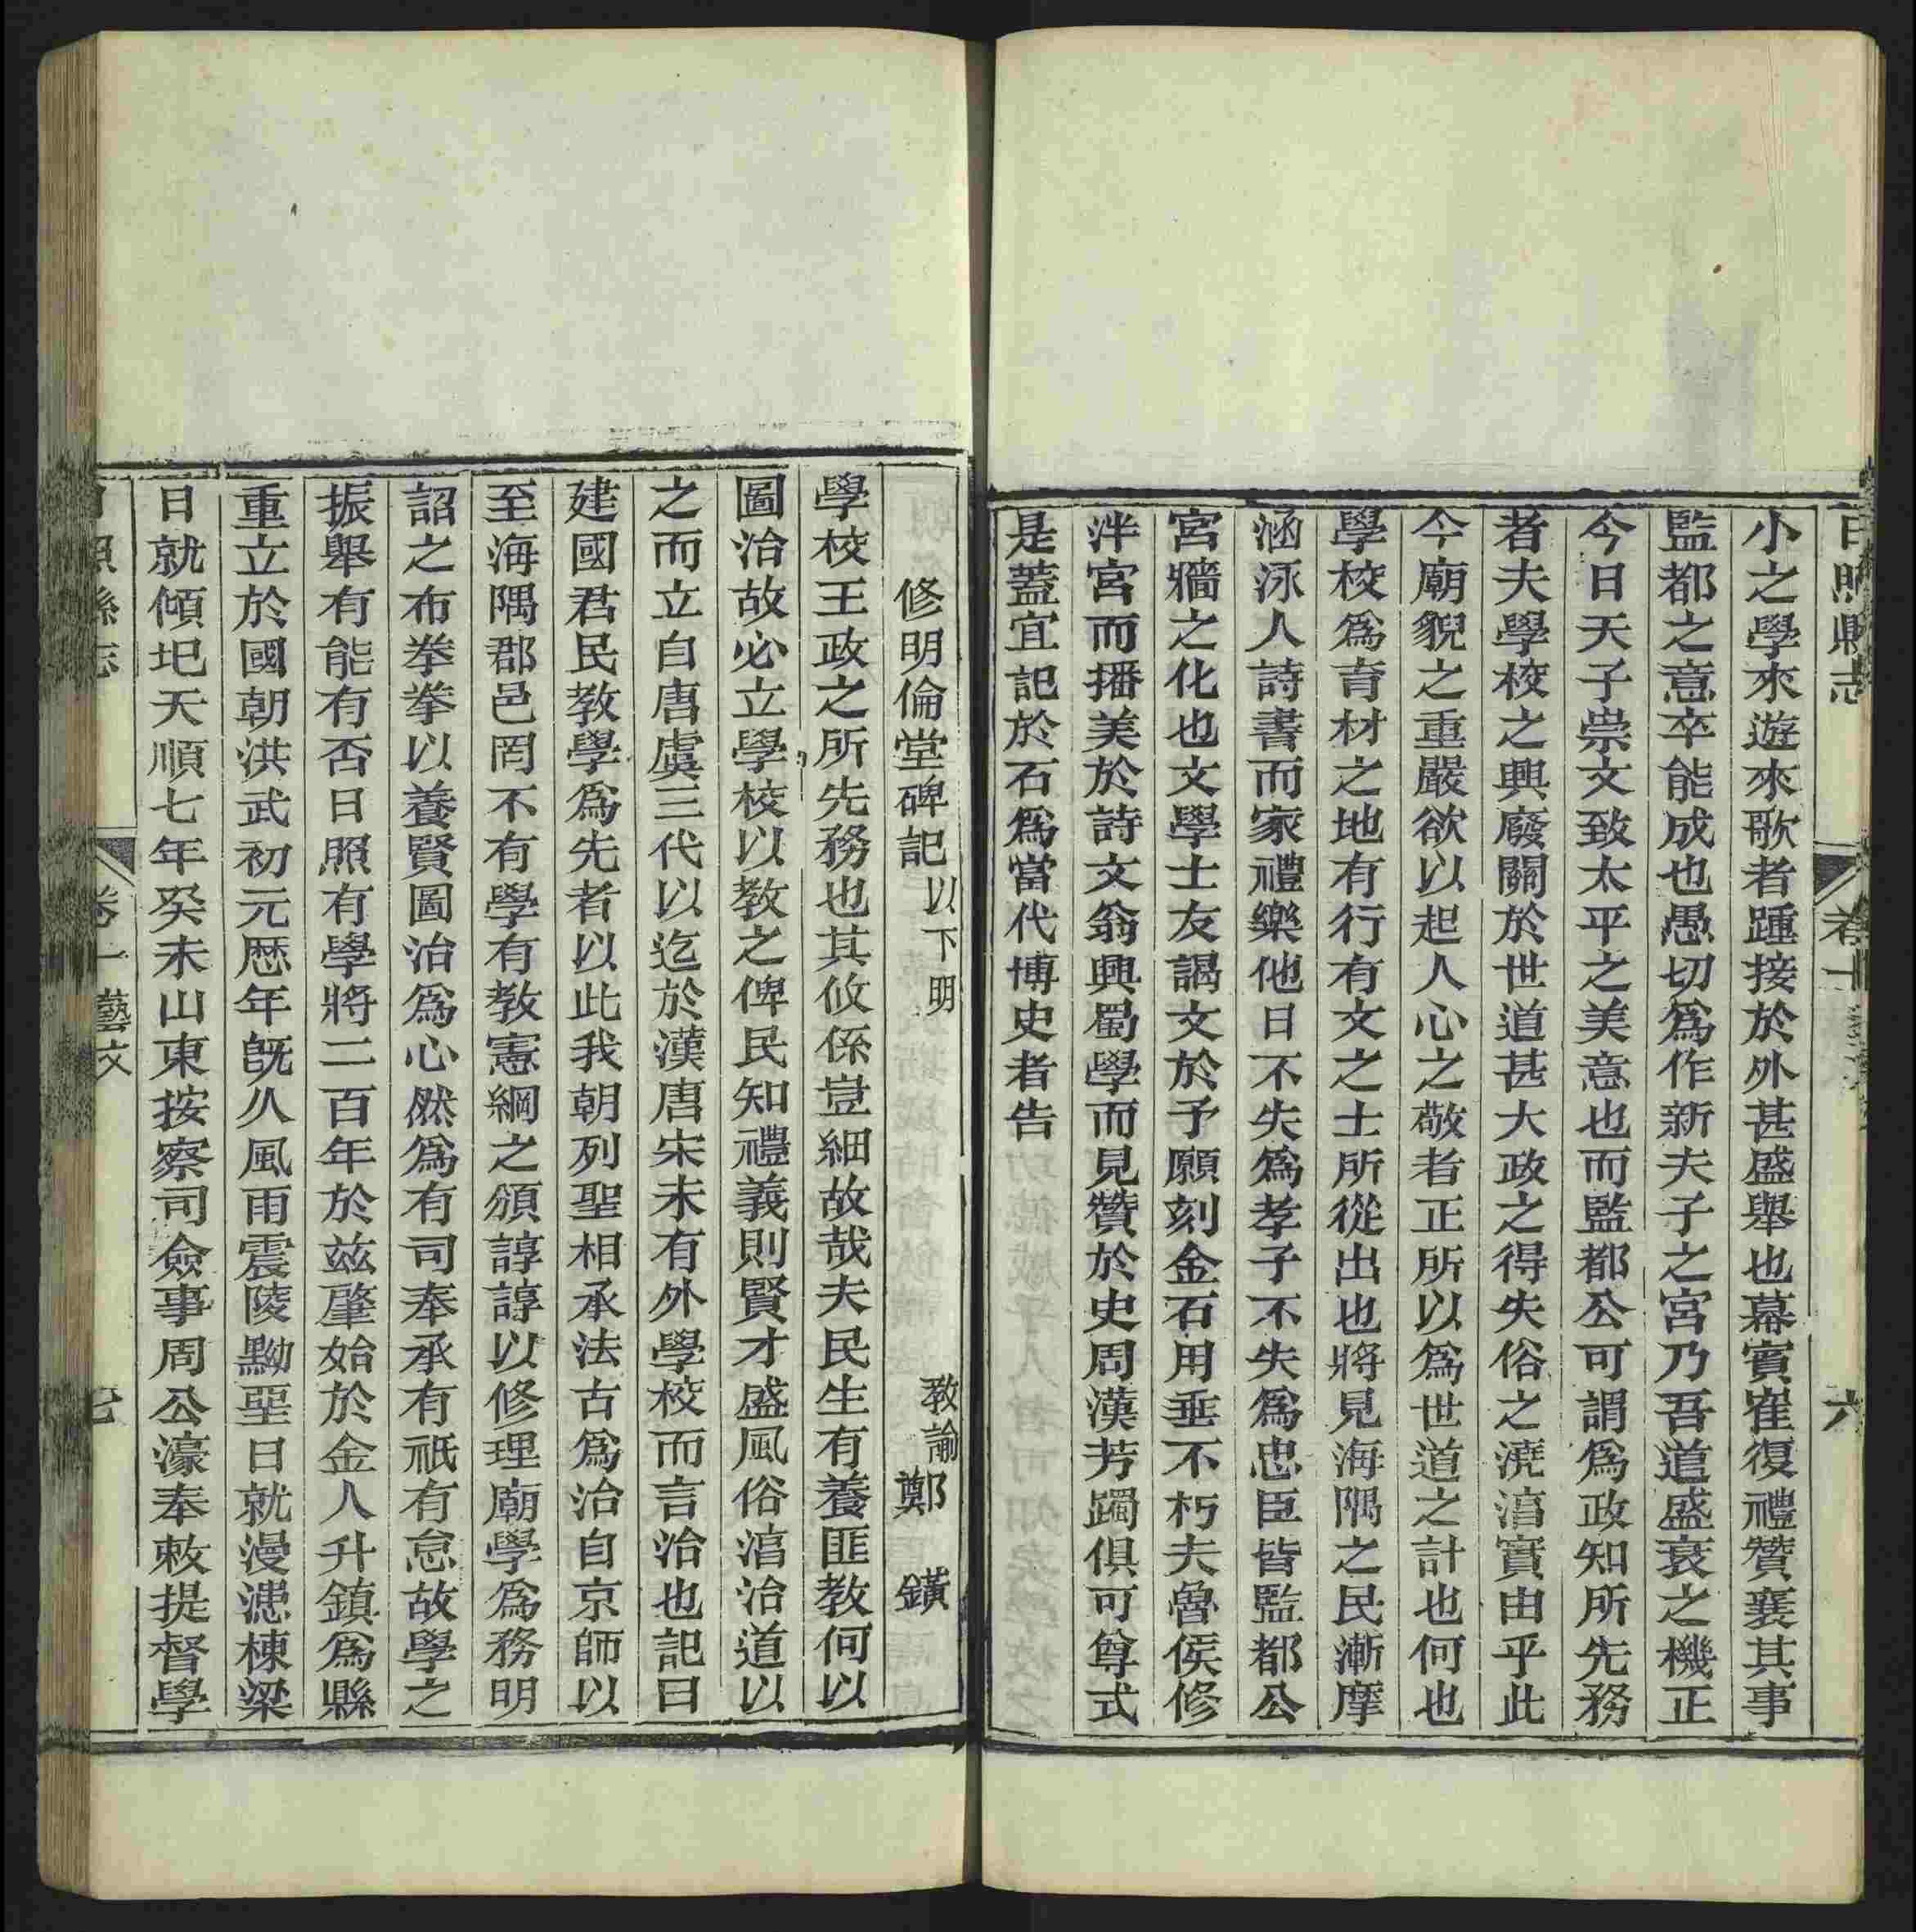 日照縣志
卷十
六
小之學來遊來歌者踵接於外甚盛舉也幕賓崔復禮贊襄其事
監都之意卒能成也愚切爲作新夫子之宮乃吾道盛衰之機正
今日天子崇文致太平之美意也而監都公可謂爲政知所先務
者夫學校之興廢關於世道甚大政之得失俗之澆漓實由乎此
今廟貌之重嚴欲以起人心之敬者正所以爲世道之計也何也
學校爲育材之地有行有文之士所從出也將見海隅之民漸摩
涵泳人詩書而家禮樂他日不失爲孝子不失爲忠臣皆監都公
宮牆之化也文學士友謁文於予願刻金石用垂不朽夫魯侯修
泮宮而播美於詩文翁興蜀學而見贊於史周漢芳躅俱可尊式
是蓋宜記於石爲當代博史者告
修明倫堂碑記以下明 教諭鄭鐄
學校王政之所先務也其攸係豈細故哉夫民生有養匪教何以
圖治故必立學校以教之俾民知禮義則賢才盛風俗淳治道以
之而立自唐虞三代以迄於漢唐宋未有外學校而言治也記曰
建國君民教學爲先者以此我朝列聖相承法古爲治自京師以
至海隅郡邑罔不有學有教憲綱之頒諄諄以修理廟學爲務明
詔之布拳拳以養賢圖治爲心然爲有司奉承有祇有怠故學之
振舉有能有否日照有學將二百年於兹肇始於金人升鎮爲縣
重立於國朝洪武初元歷年旣久風雨震陵黝堊日就漫漶棟梁
日就傾圯天順七年癸未山東按察司僉事周公濠奉敕提督學
日照縣志
卷十 藝文
七